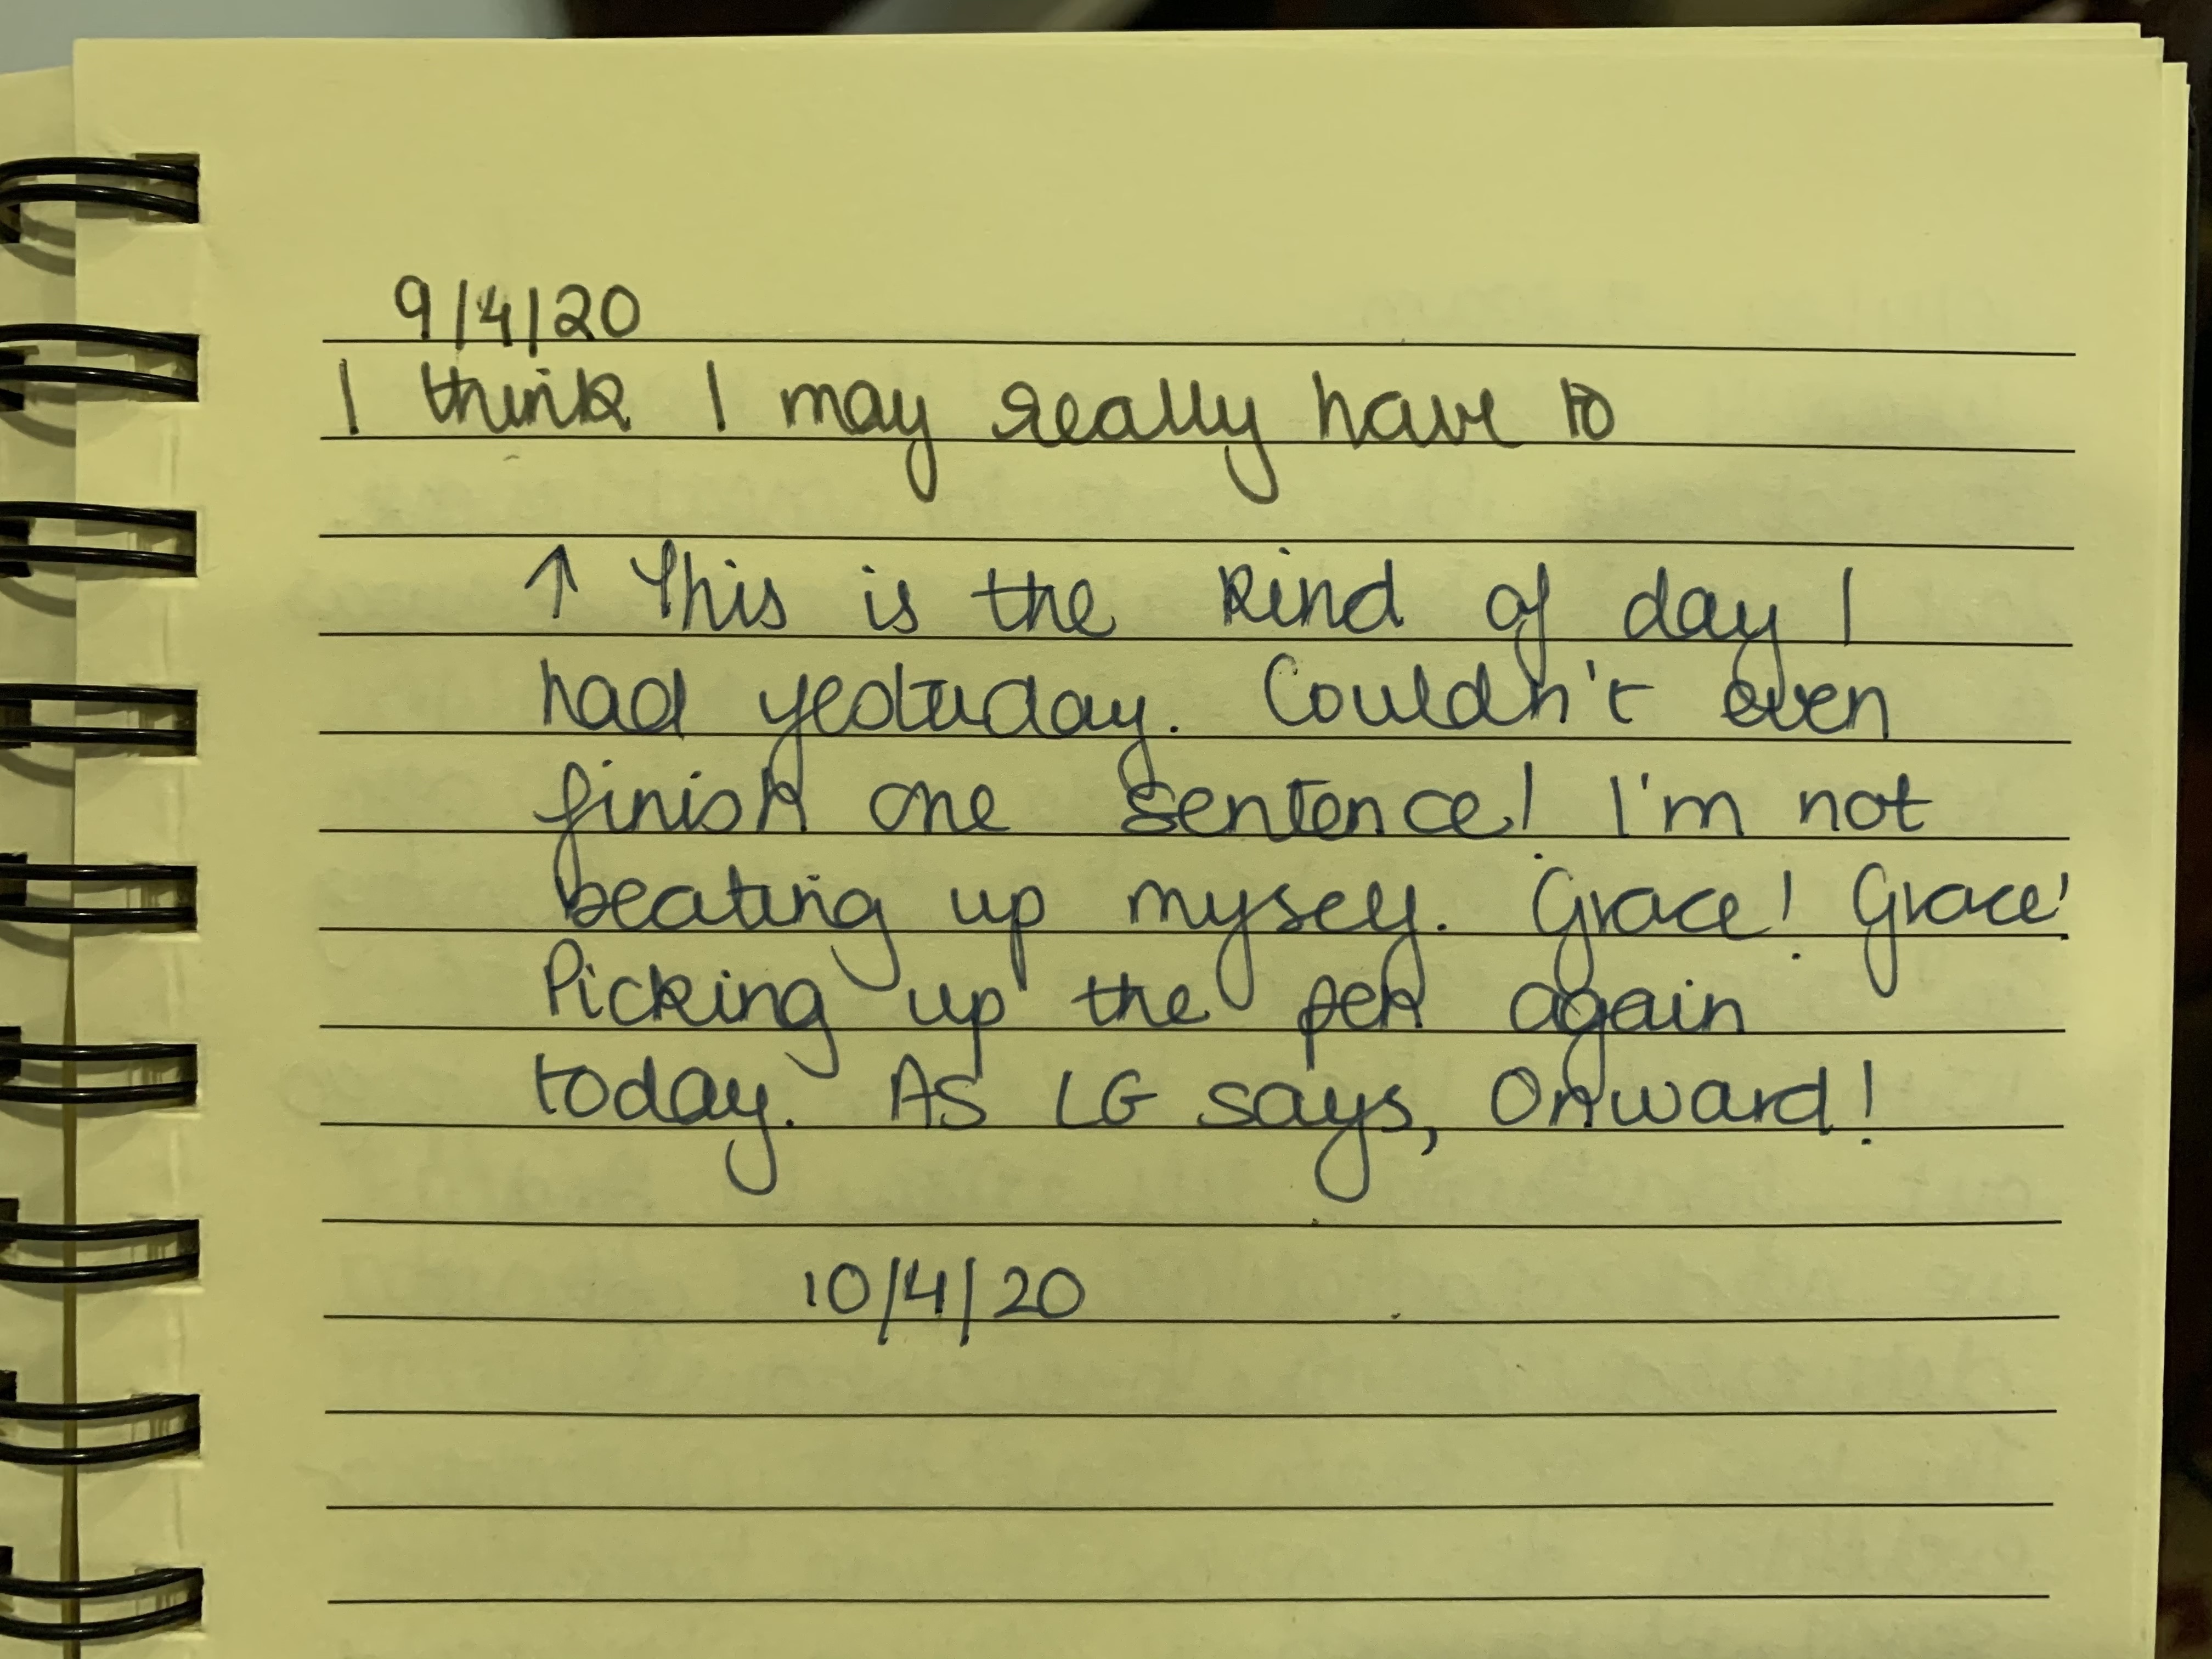 9/4/20
I think I may really have to
↑ This is the kind of day I
had yesterday. Couldn't even
finish one sentence! I'm not
beating up myself. Grace! Grace!
Picking up the pen again
today. As LG says, Onward!
10/4/20